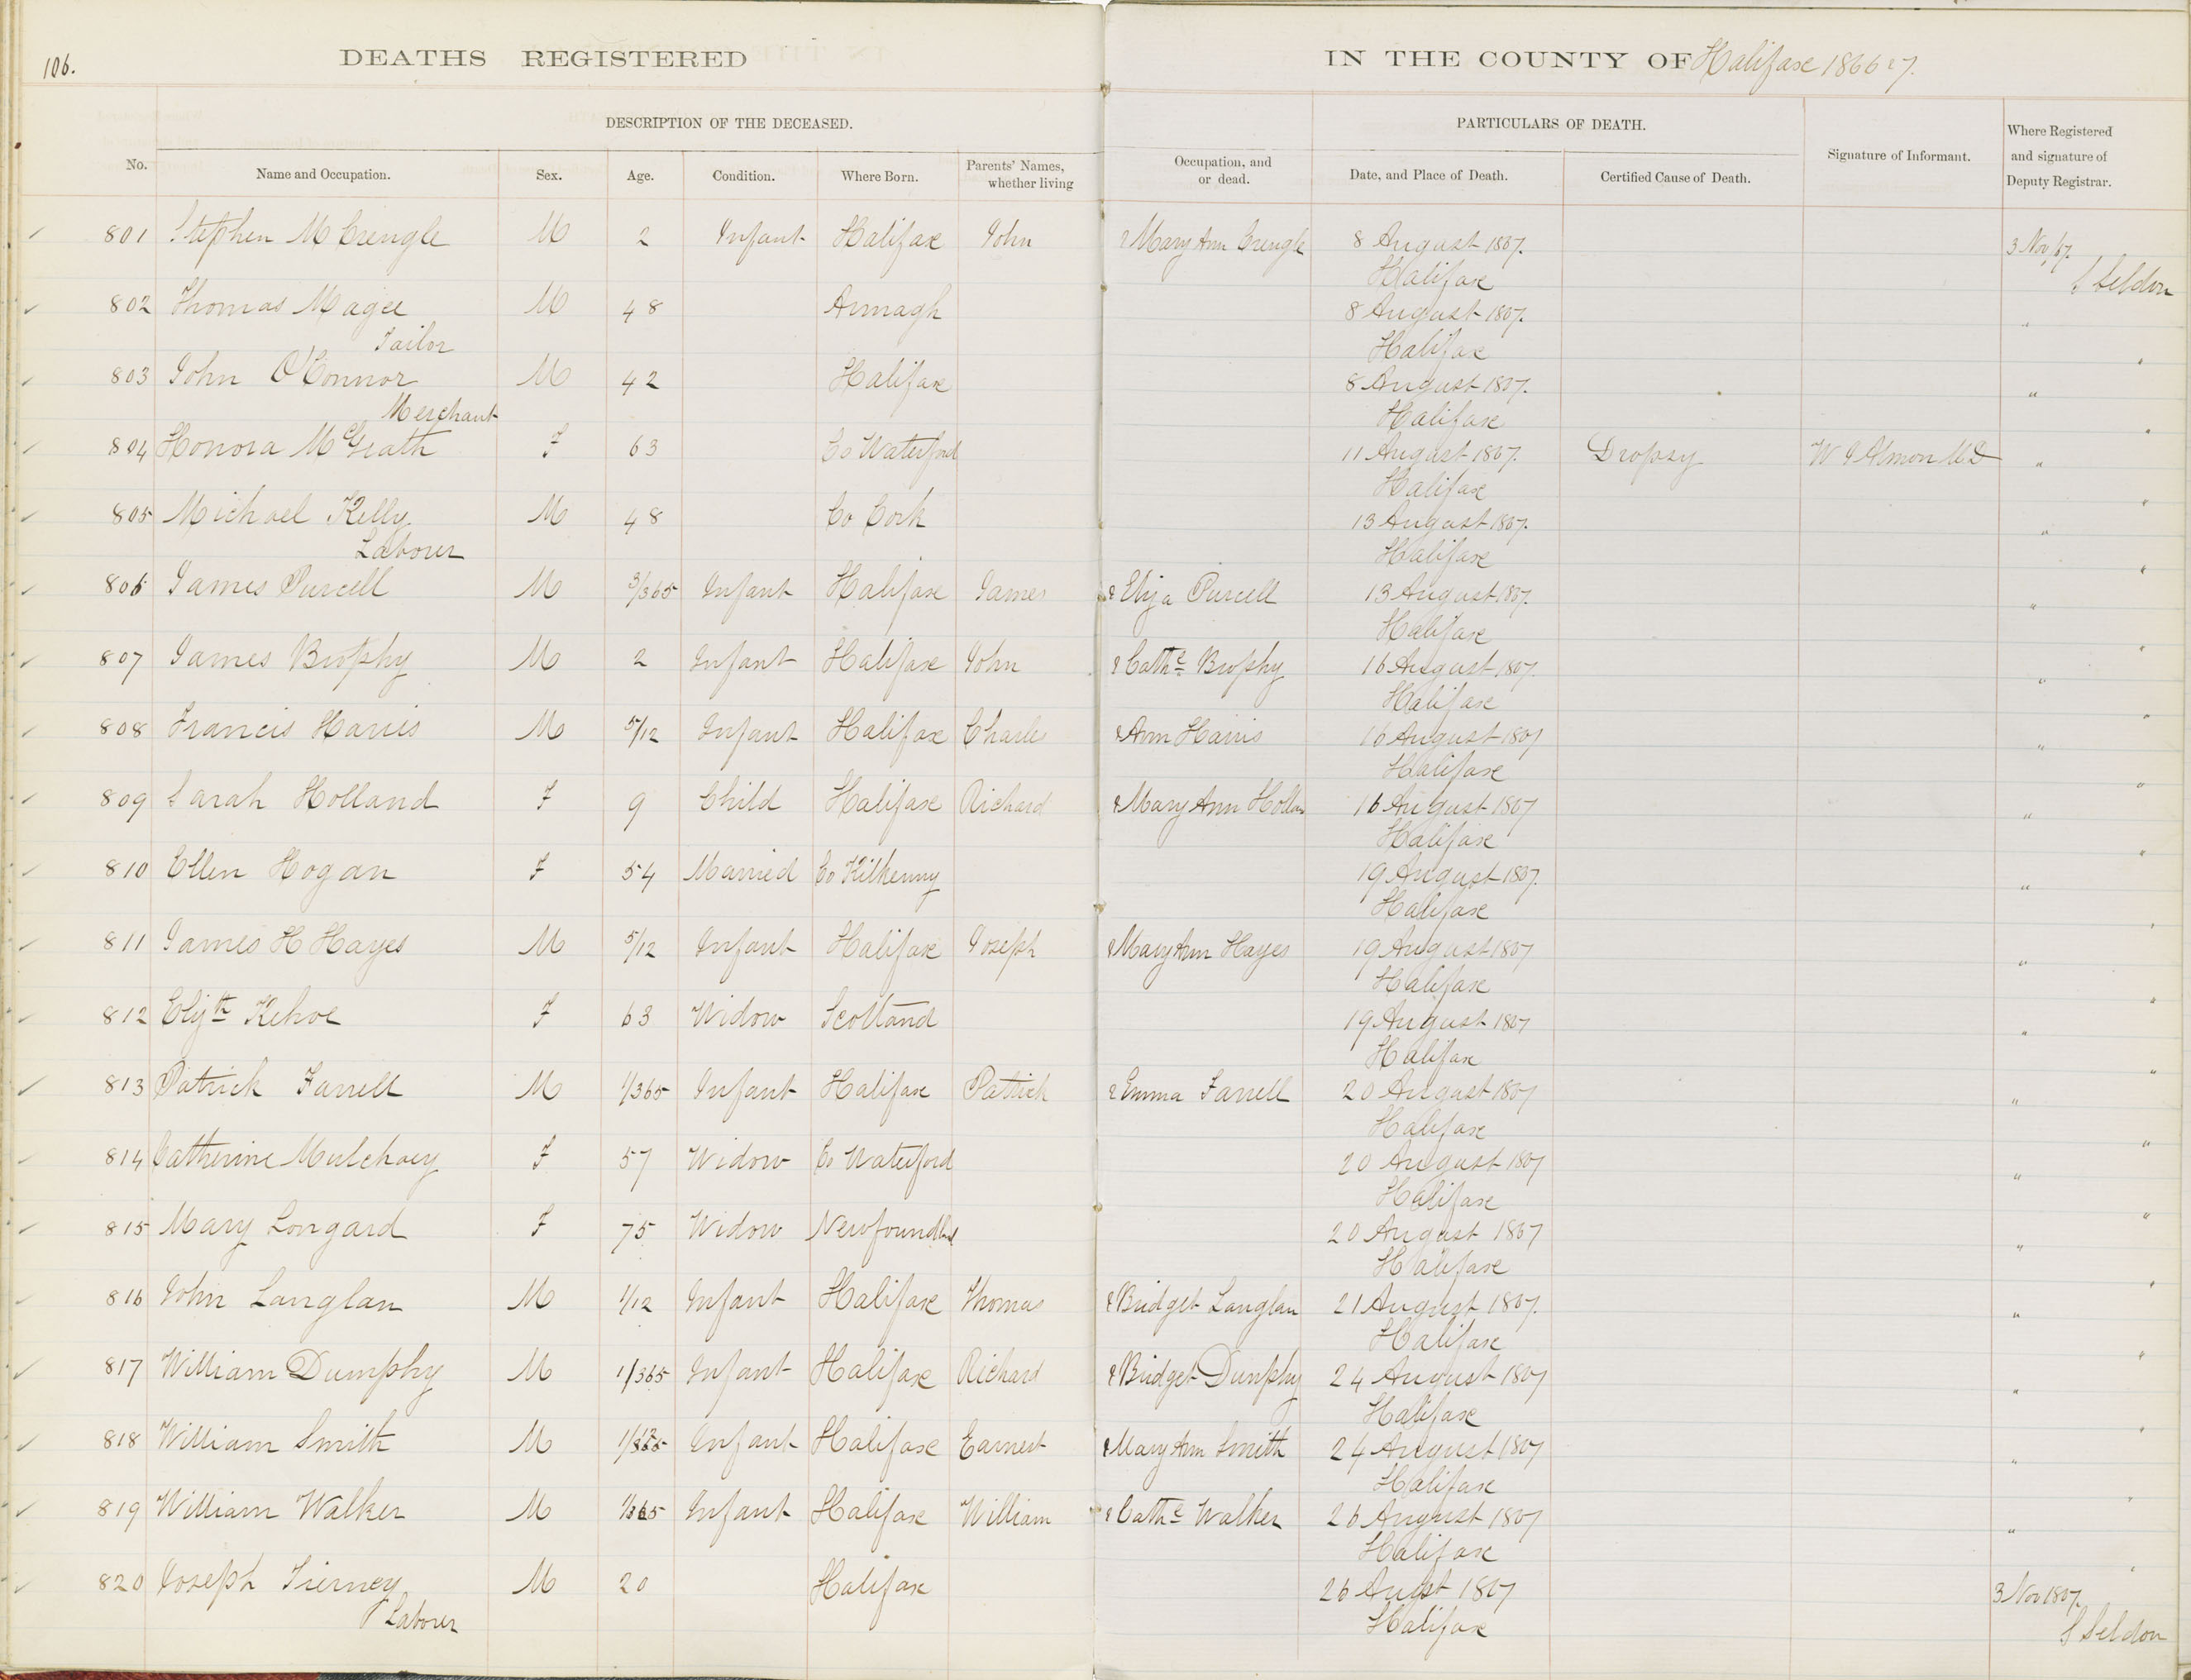 106.
DEATHS REGISTERED
IN THE COUNTY OF Halifax 1866 & 7.
DESCRIPTION OF THE DECEASED.
PARTICULARS OF DEATH.
No.
Name and Occupation.
Sex.
Age.
Condition.
Where Born.
Parents' Names, whether living
Occupation, and or dead.
Date, and Place of Death.
Certified Cause of Death.
Signature of Informant.
Where Registered and signature of Deputy Registrar.
801 Stephen M Crengle M 2 Infant Halifax John & Mary Ann Crengle 8 August 1867. 3 Nov/67.
Halifax S Seldon
802 Thomas Magee M 48 Armagh 8 August 1867. "
Tailor Halifax "
803 John O'Connor M 42 Halifax 8 August 1867. "
Merchant Halifax "
804 Honora McGrath F 63 Co Waterford 11 August 1867. Dropsy W J Almon MD "
Halifax "
805 Michael Kelly M 48 Co Cork 13 August 1867. "
Laborer Halifax "
806 James Purcell M 3/365 Infant Halifax James & Eliza Purcell 13 August 1867. "
Halifax "
807 James Brophy M 2 Infant Halifax John & Cathe Brophy 16 August 1867. "
Halifax "
808 Francis Harris M 5/12 Infant Halifax Charles & Ann Harris 16 August 1867 "
Halifax "
809 Sarah Holland F 9 Child Halifax Richard & Mary Ann Hollan 16 August 1867 "
Halifax "
810 Ellen Hogan F 54 Married Co Kilkenny 19 August 1867. "
Halifax "
811 James H Hayes M 5/12 Infant Halifax Joseph & Mary Ann Hayes 19 August 1867 "
Halifax "
812 Elizth Kehoe F 63 Widow Scotland 19 August 1867 "
Halifax "
813 Patrick Farrell M 1/365 Infant Halifax Patrick & Emma Farrell 20 August 1867 "
Halifax "
814 Catherine Mulchaey F 57 Widow Co Waterford 20 August 1867 "
Halifax "
815 Mary Longard F 75 Widow Newfoundland 20 August 1867 "
Halifax "
816 John Langlan M 1/12 Infant Halifax Thomas & Bridget Langlan 21 August 1867. "
Halifax "
817 William Dumphy M 1/365 Infant Halifax Richard & Bridget Dunphy 24 August 1867 "
Halifax "
818 William Smith M Infant Halifax Earnest & Mary Ann Smith 24 August 1867 "
Halifax "
819 William Walker M 1/365 Infant Halifax William & Cathe Walker 26 August 1867 "
Halifax "
820 Joseph Tierney M 20 Halifax 26 Augst 1867 3 Nov 1867.
Laborer Halifax S Seldon